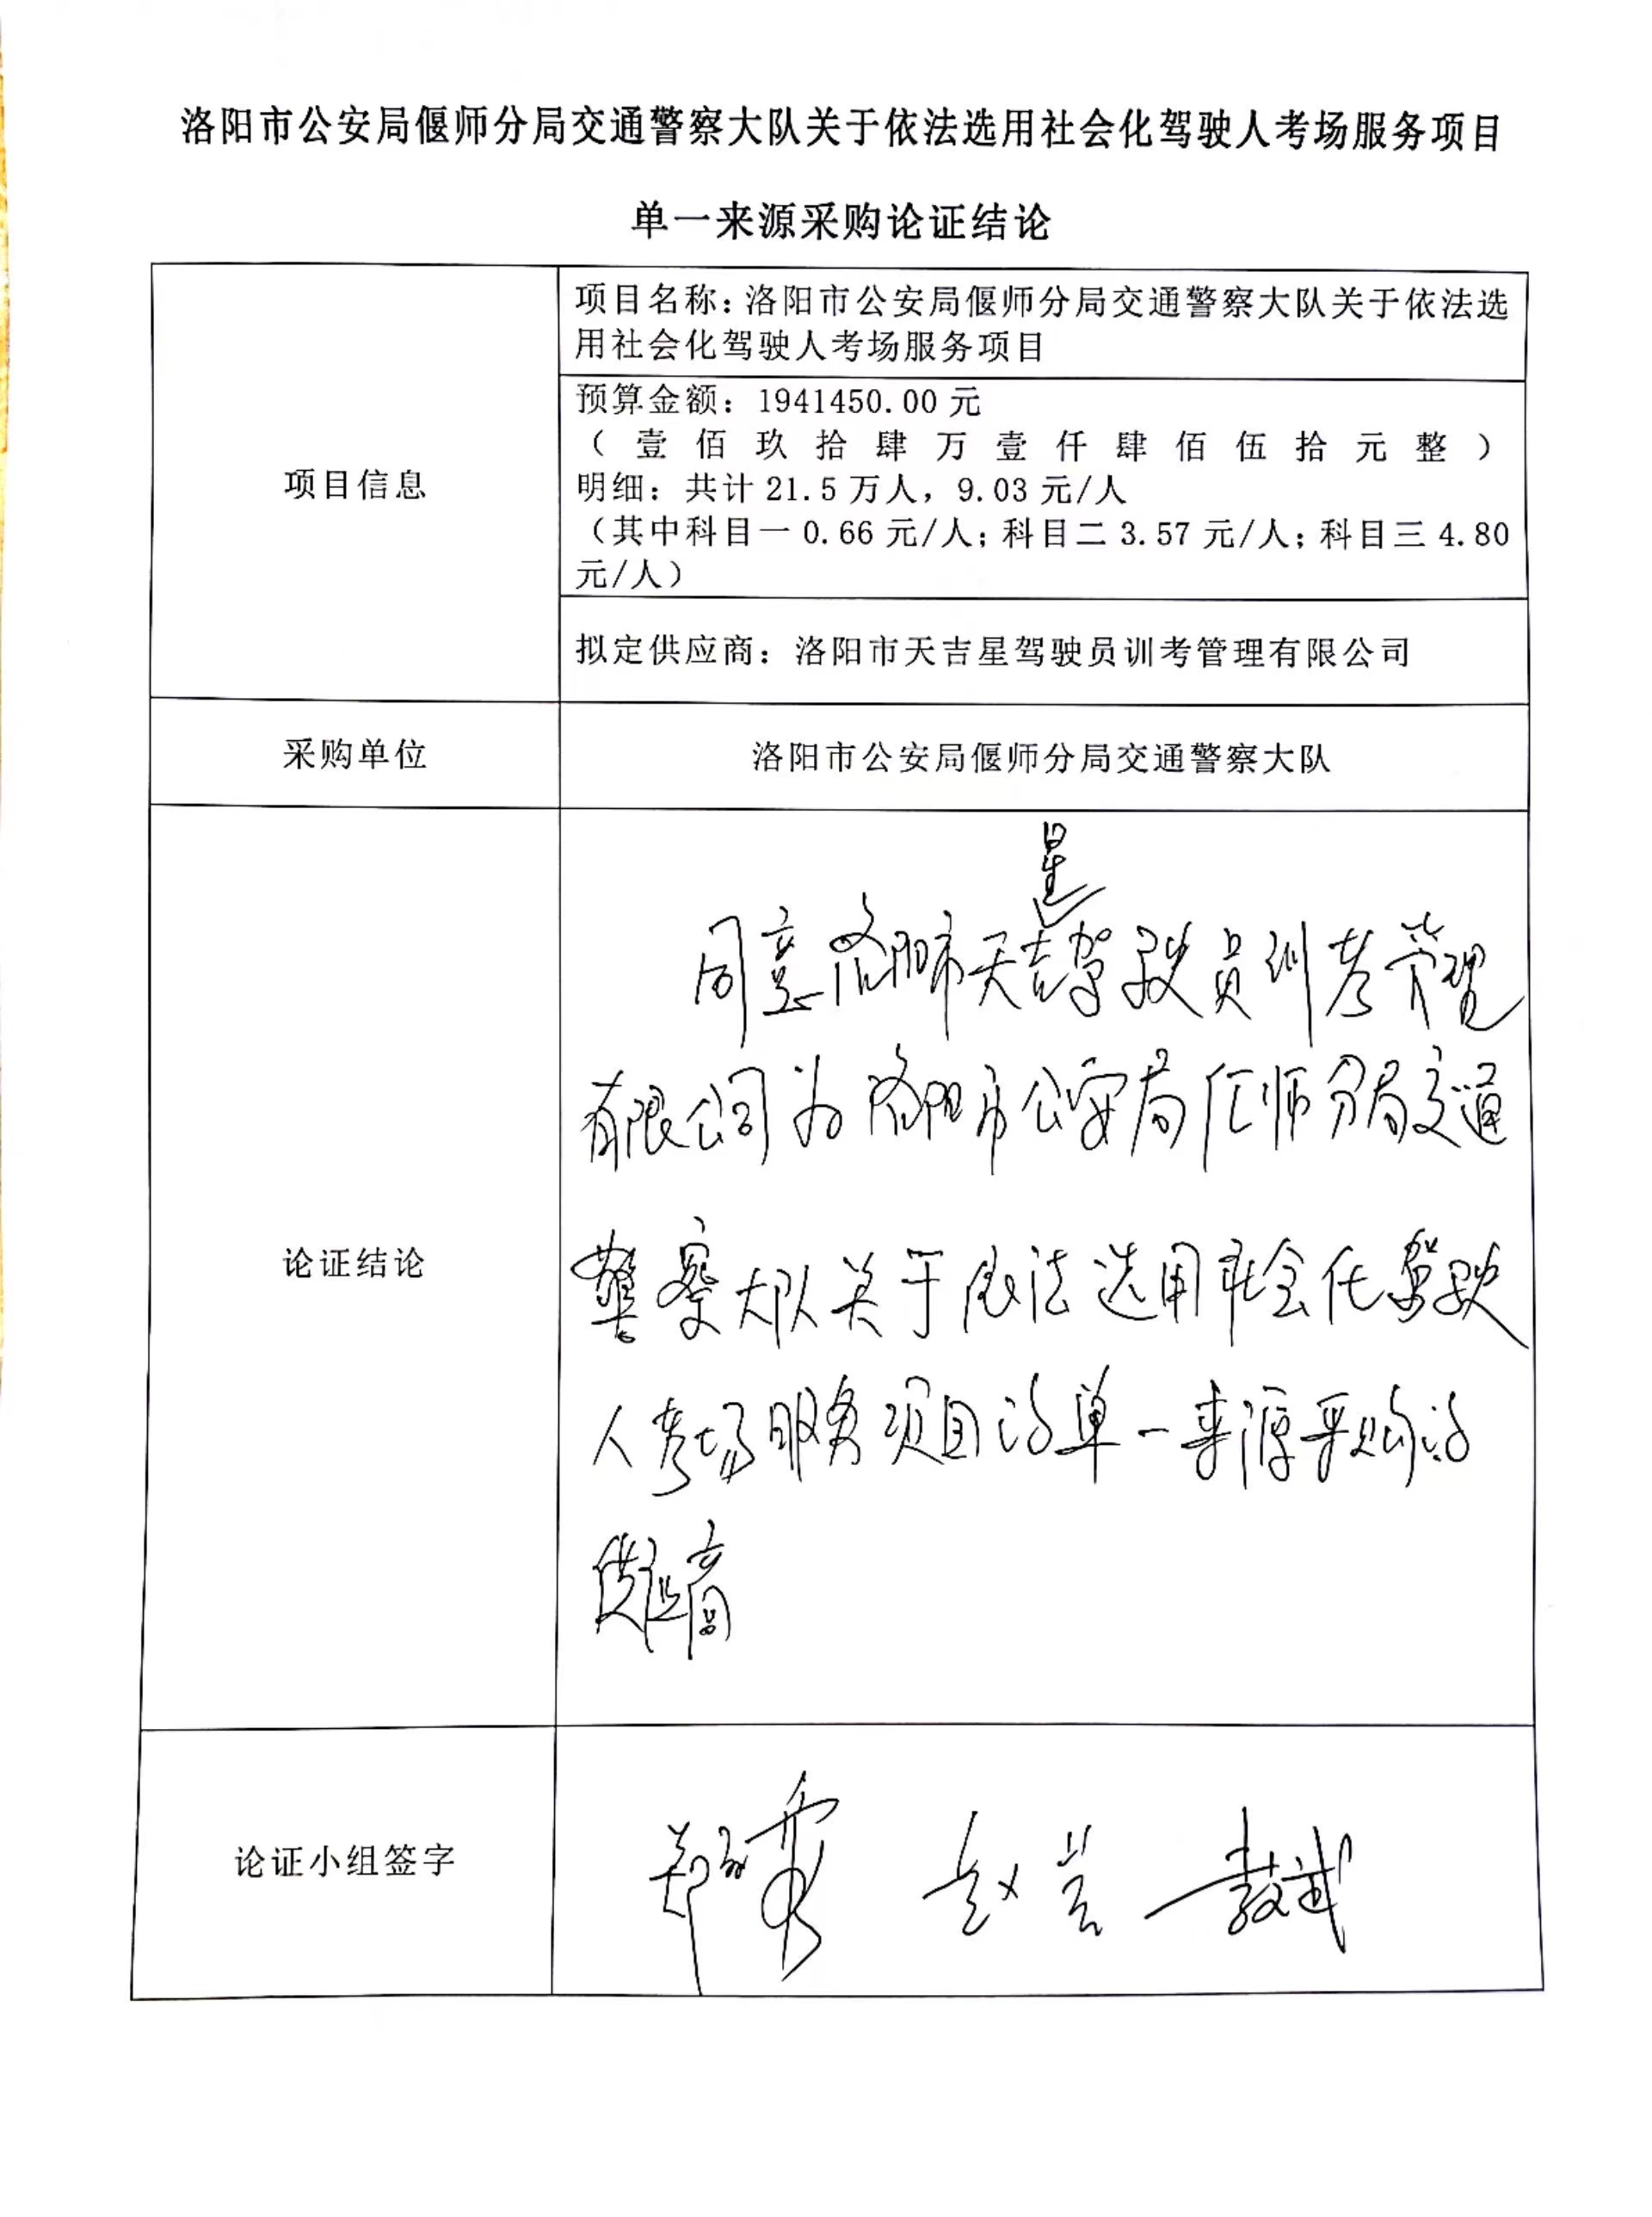 洛阳市公安局偃师分局交通警察大队关于依法选用社会化驾驶人考场服务项目
单一来源采购论证结论
项目信息
项目名称：洛阳市公安局偃师分局交通警察大队关于依法选
用社会化驾驶人考场服务项目
预算金额：1941450.00 元
（壹佰玖拾肆万壹仟肆佰伍拾元整）
明细：共计 21.5 万人，9.03 元/人
（其中科目一 0.66 元/人；科目二 3.57 元/人；科目三 4.80
元/人）
拟定供应商：洛阳市天吉星驾驶员训考管理有限公司
采购单位
洛阳市公安局偃师分局交通警察大队
论证结论
星
同意洛阳市天吉驾驶员训考管理
有限公司为洛阳市公安局偃师分局交通
警察大队关于依法选用社会化驾驶
人考场服务项目的单一来源采购的
供应商
论证小组签字